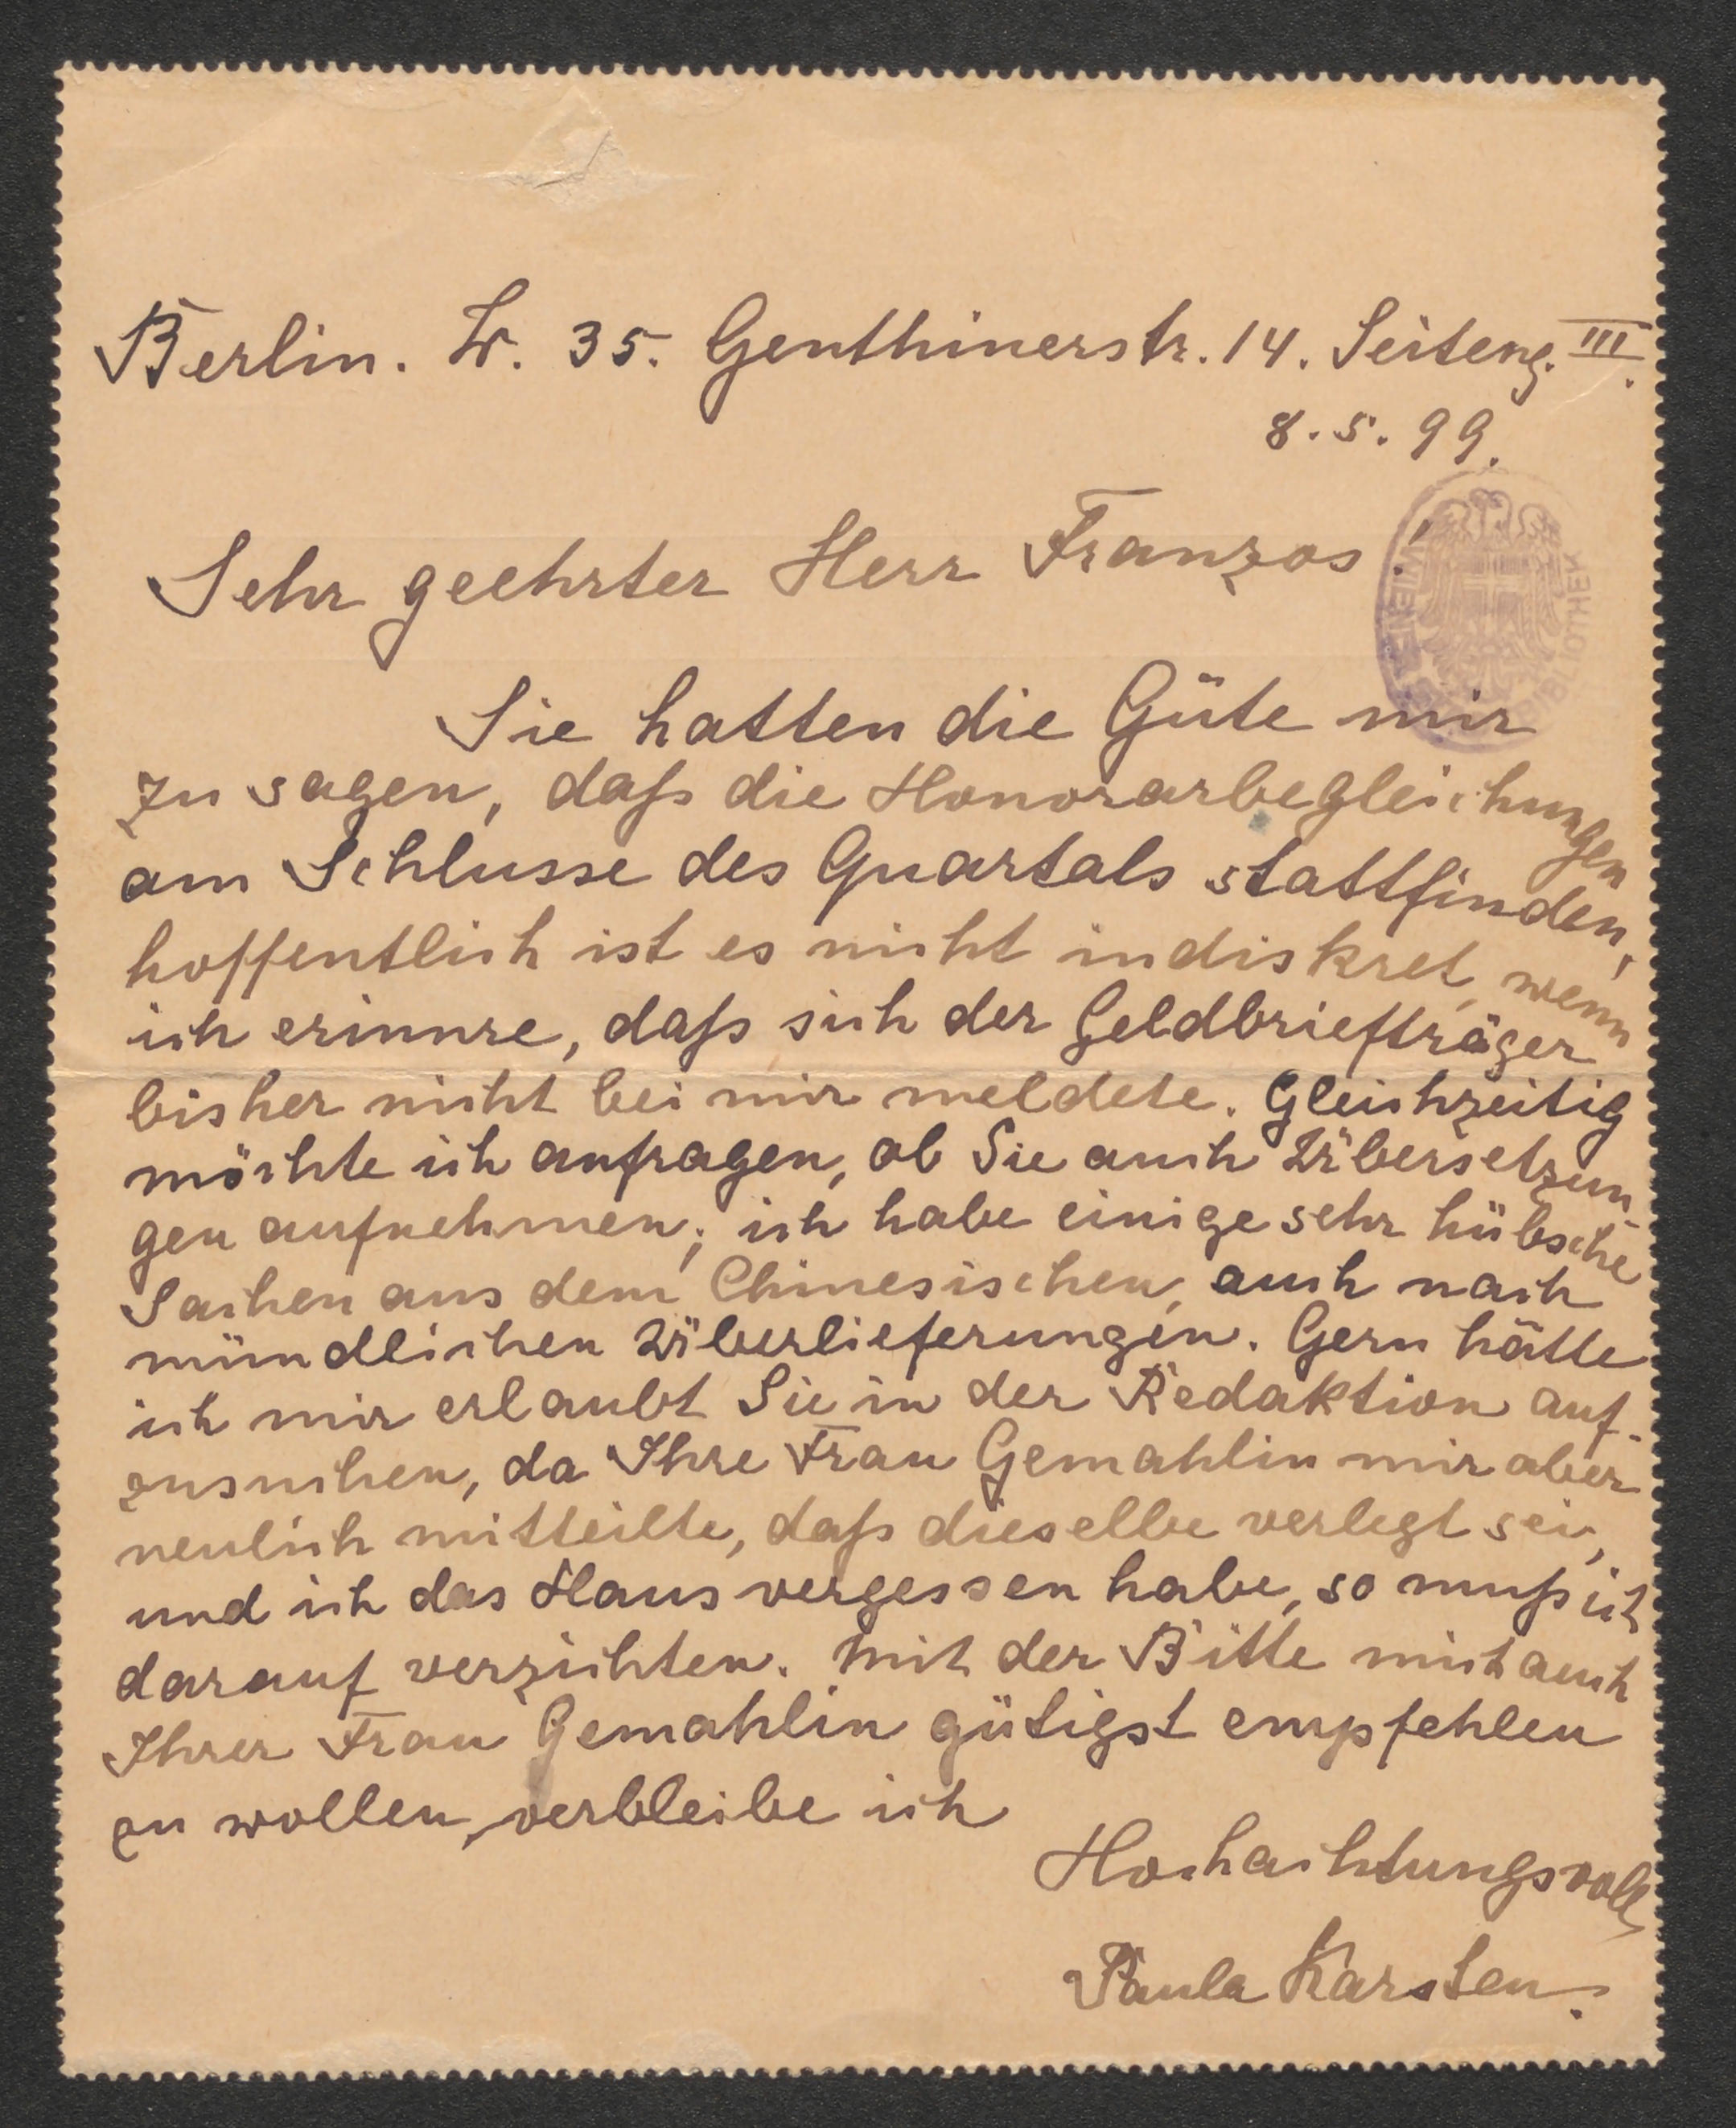 Berlin. W. 35. Genthinerstr. 14. Seiteng. III.
8. 5. 99.
Sehr geehrter Herr Franzos!
Sie hatten die Güte mir
zu sagen, daß die Honorarbegleichungen
am Schlusse des Quartals stattfinden,
hoffentlich ist es nicht indiskret, wenn
ich erinnre, daß sich der Geldbriefträger
bisher nicht bei mir meldete. Gleichzeitig
möchte ich anfragen, ob Sie auch Übersetzun-
gen aufnehmen; ich habe einige sehr hübsche
Sachen aus dem Chinesischen, auch nach
mündlichen Überlieferungen. Gern hätte
ich mir erlaubt Sie in der Redaktion auf-
zusuchen, da Ihre Frau Gemahlin mir aber
neulich mitteilte, daß dieselbe verlegt sei,
und ich das Haus vergessen habe, so muß ich
darauf verzichten. Mit der Bitte mich auch
Ihrer Frau Gemahlin gütigst empfehlen
zu wollen, verbleibe ich
Hochachtungsvoll
Paula Karsten.